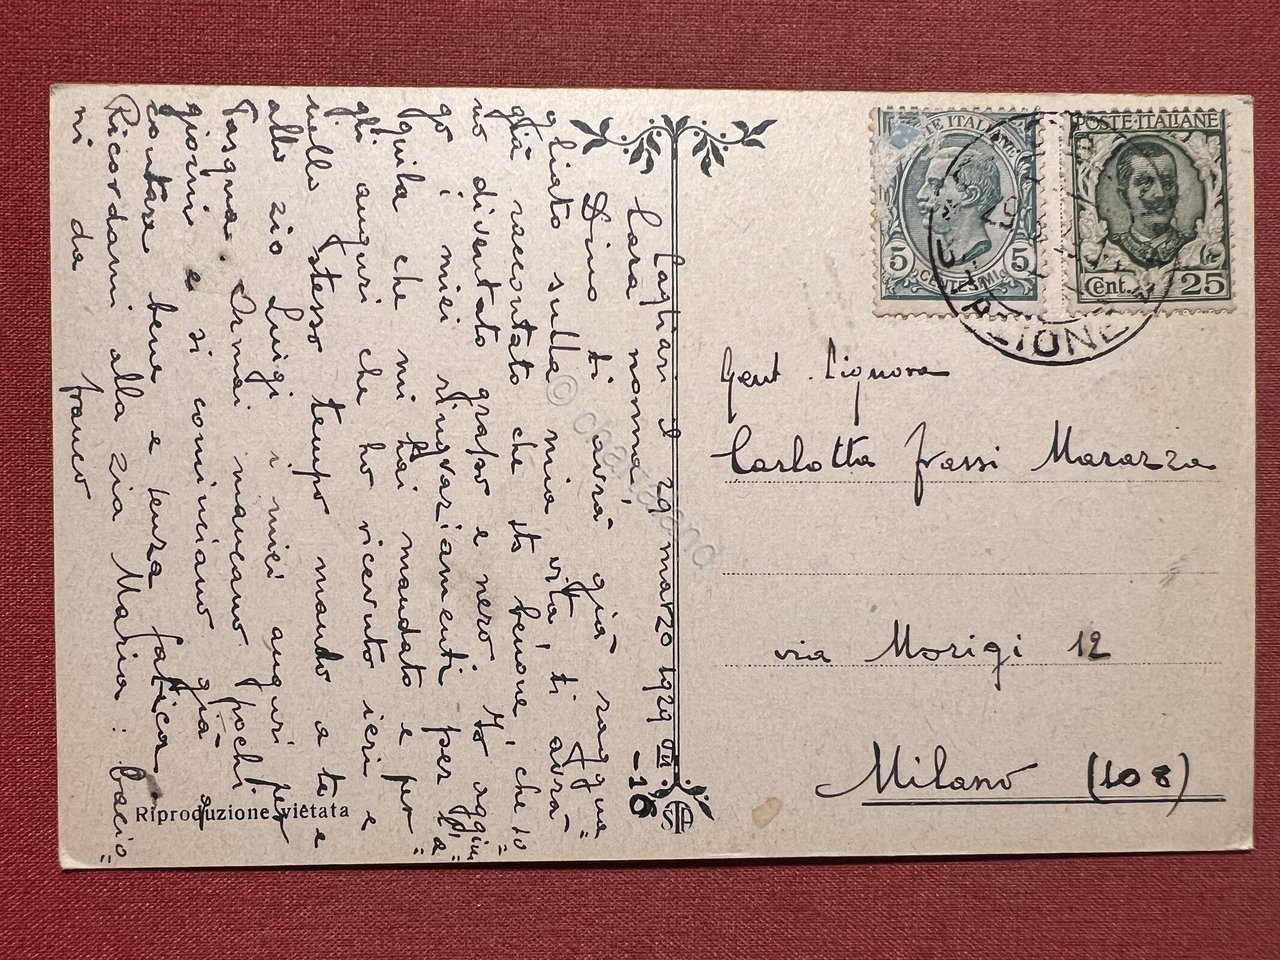 Cagliari il 29 marzo 1929 VII
-16
Cara nonna,
Dino ti avrà già raggua=
gliato sulla mia vita, ti avrà
già raccontato che sto benone, che so=
no diventato grasso e nero. Io aggiu=
go i miei ringraziamenti per l'a=
quila che mi hai mandato e per
gli auguri che ho ricevuto ieri e
nello stesso tempo mando a te e
allo zio Luigi i miei auguri per
Pasqua. Ormai mancano pochi
giorni e si cominciano già a
contare bene e senza fatica.
Ricordami alla zia Maria: bacio=
ni da franco
Riproduzione vietata
POSTE ITALIANE
5 CENTESIMI 5
POSTE·ITALIANE
Cent. 25
Gent. Signora
Carlotta frassi Marazza
via Morigi 12
Milano (108)
© charta.land